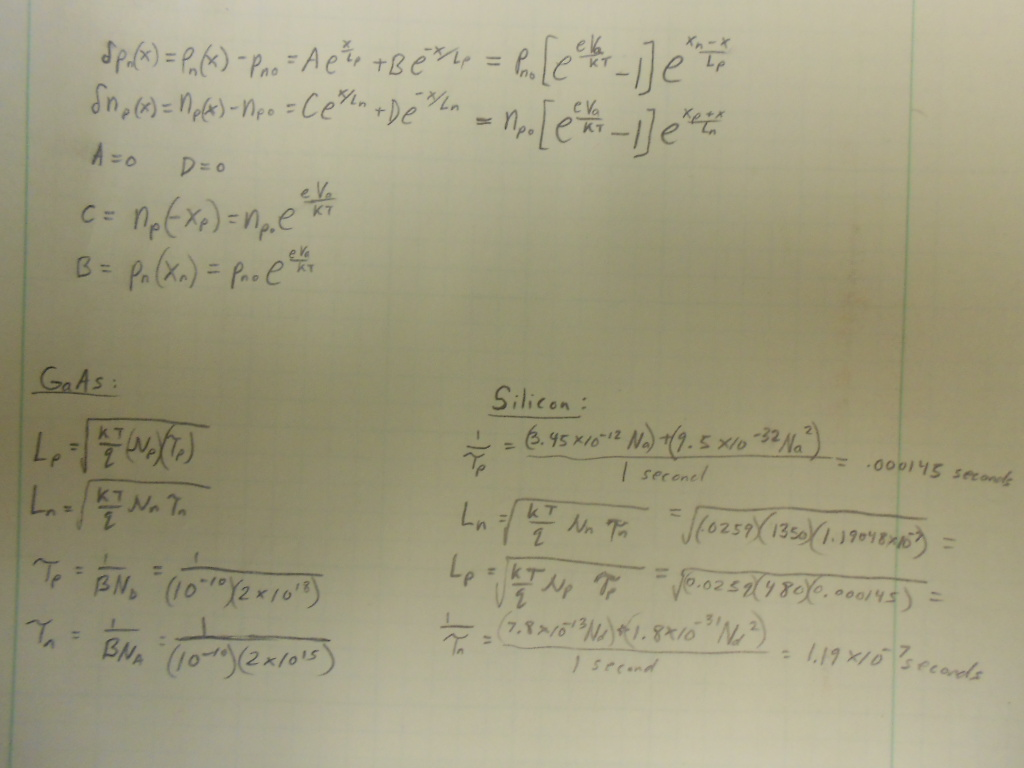 δpₙ(x) = pₙ(x) - pₙ₀ = A e^(x/Lp) + B e^(-x/Lp) = pₙ₀ [e^(eVa/kT) - 1] e^((xₙ-x)/Lp)
δnₚ(x) = nₚ(x) - nₚ₀ = C e^(x/Lₙ) + D e^(-x/Lₙ) = nₚ₀ [e^(eVa/kT) - 1] e^((xₚ+x)/Lₙ)
A = 0 D = 0
C = nₚ(-xₚ) = nₚ₀ e^(eVa/kT)
B = pₙ(xₙ) = pₙ₀ e^(eVa/kT)
GaAs:
Lₚ = √(kT/q (Nₚ)(τₚ))
Lₙ = √(kT/q Nₙ τₙ)
τₚ = 1/(BN_D) = 1/((10⁻¹⁰)(2×10¹⁸))
τₙ = 1/(BN_A) = 1/((10⁻¹⁰)(2×10¹⁵))
Silicon:
1/τₚ = ((3.45×10⁻¹² Na) + (9.5×10⁻³² Na²))/(1 second) = .000145 seconds
Lₙ = √(kT/q Nₙ τₙ) = √((.0259)(1350)(1.19048×10⁻⁷)) =
Lₚ = √(kT/q Nₚ τₚ) = √((0.0259)(480)(0.000145)) =
1/τₙ = ((7.8×10⁻¹³ Nd) + (1.8×10⁻³¹ Nd²))/(1 second) = 1.19×10⁻⁷ seconds